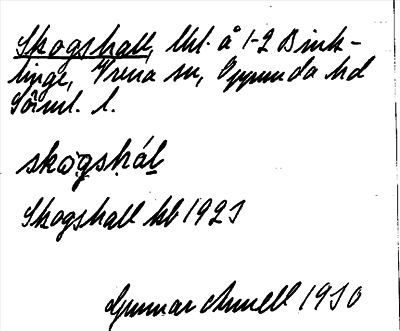 Skogshall, lht. å 1-2 Bink-
linge, Vrena sn, Oppunda hd
Söml. l.
skogshál
Skogshall kb 1925
Gunnar Arnell 1930